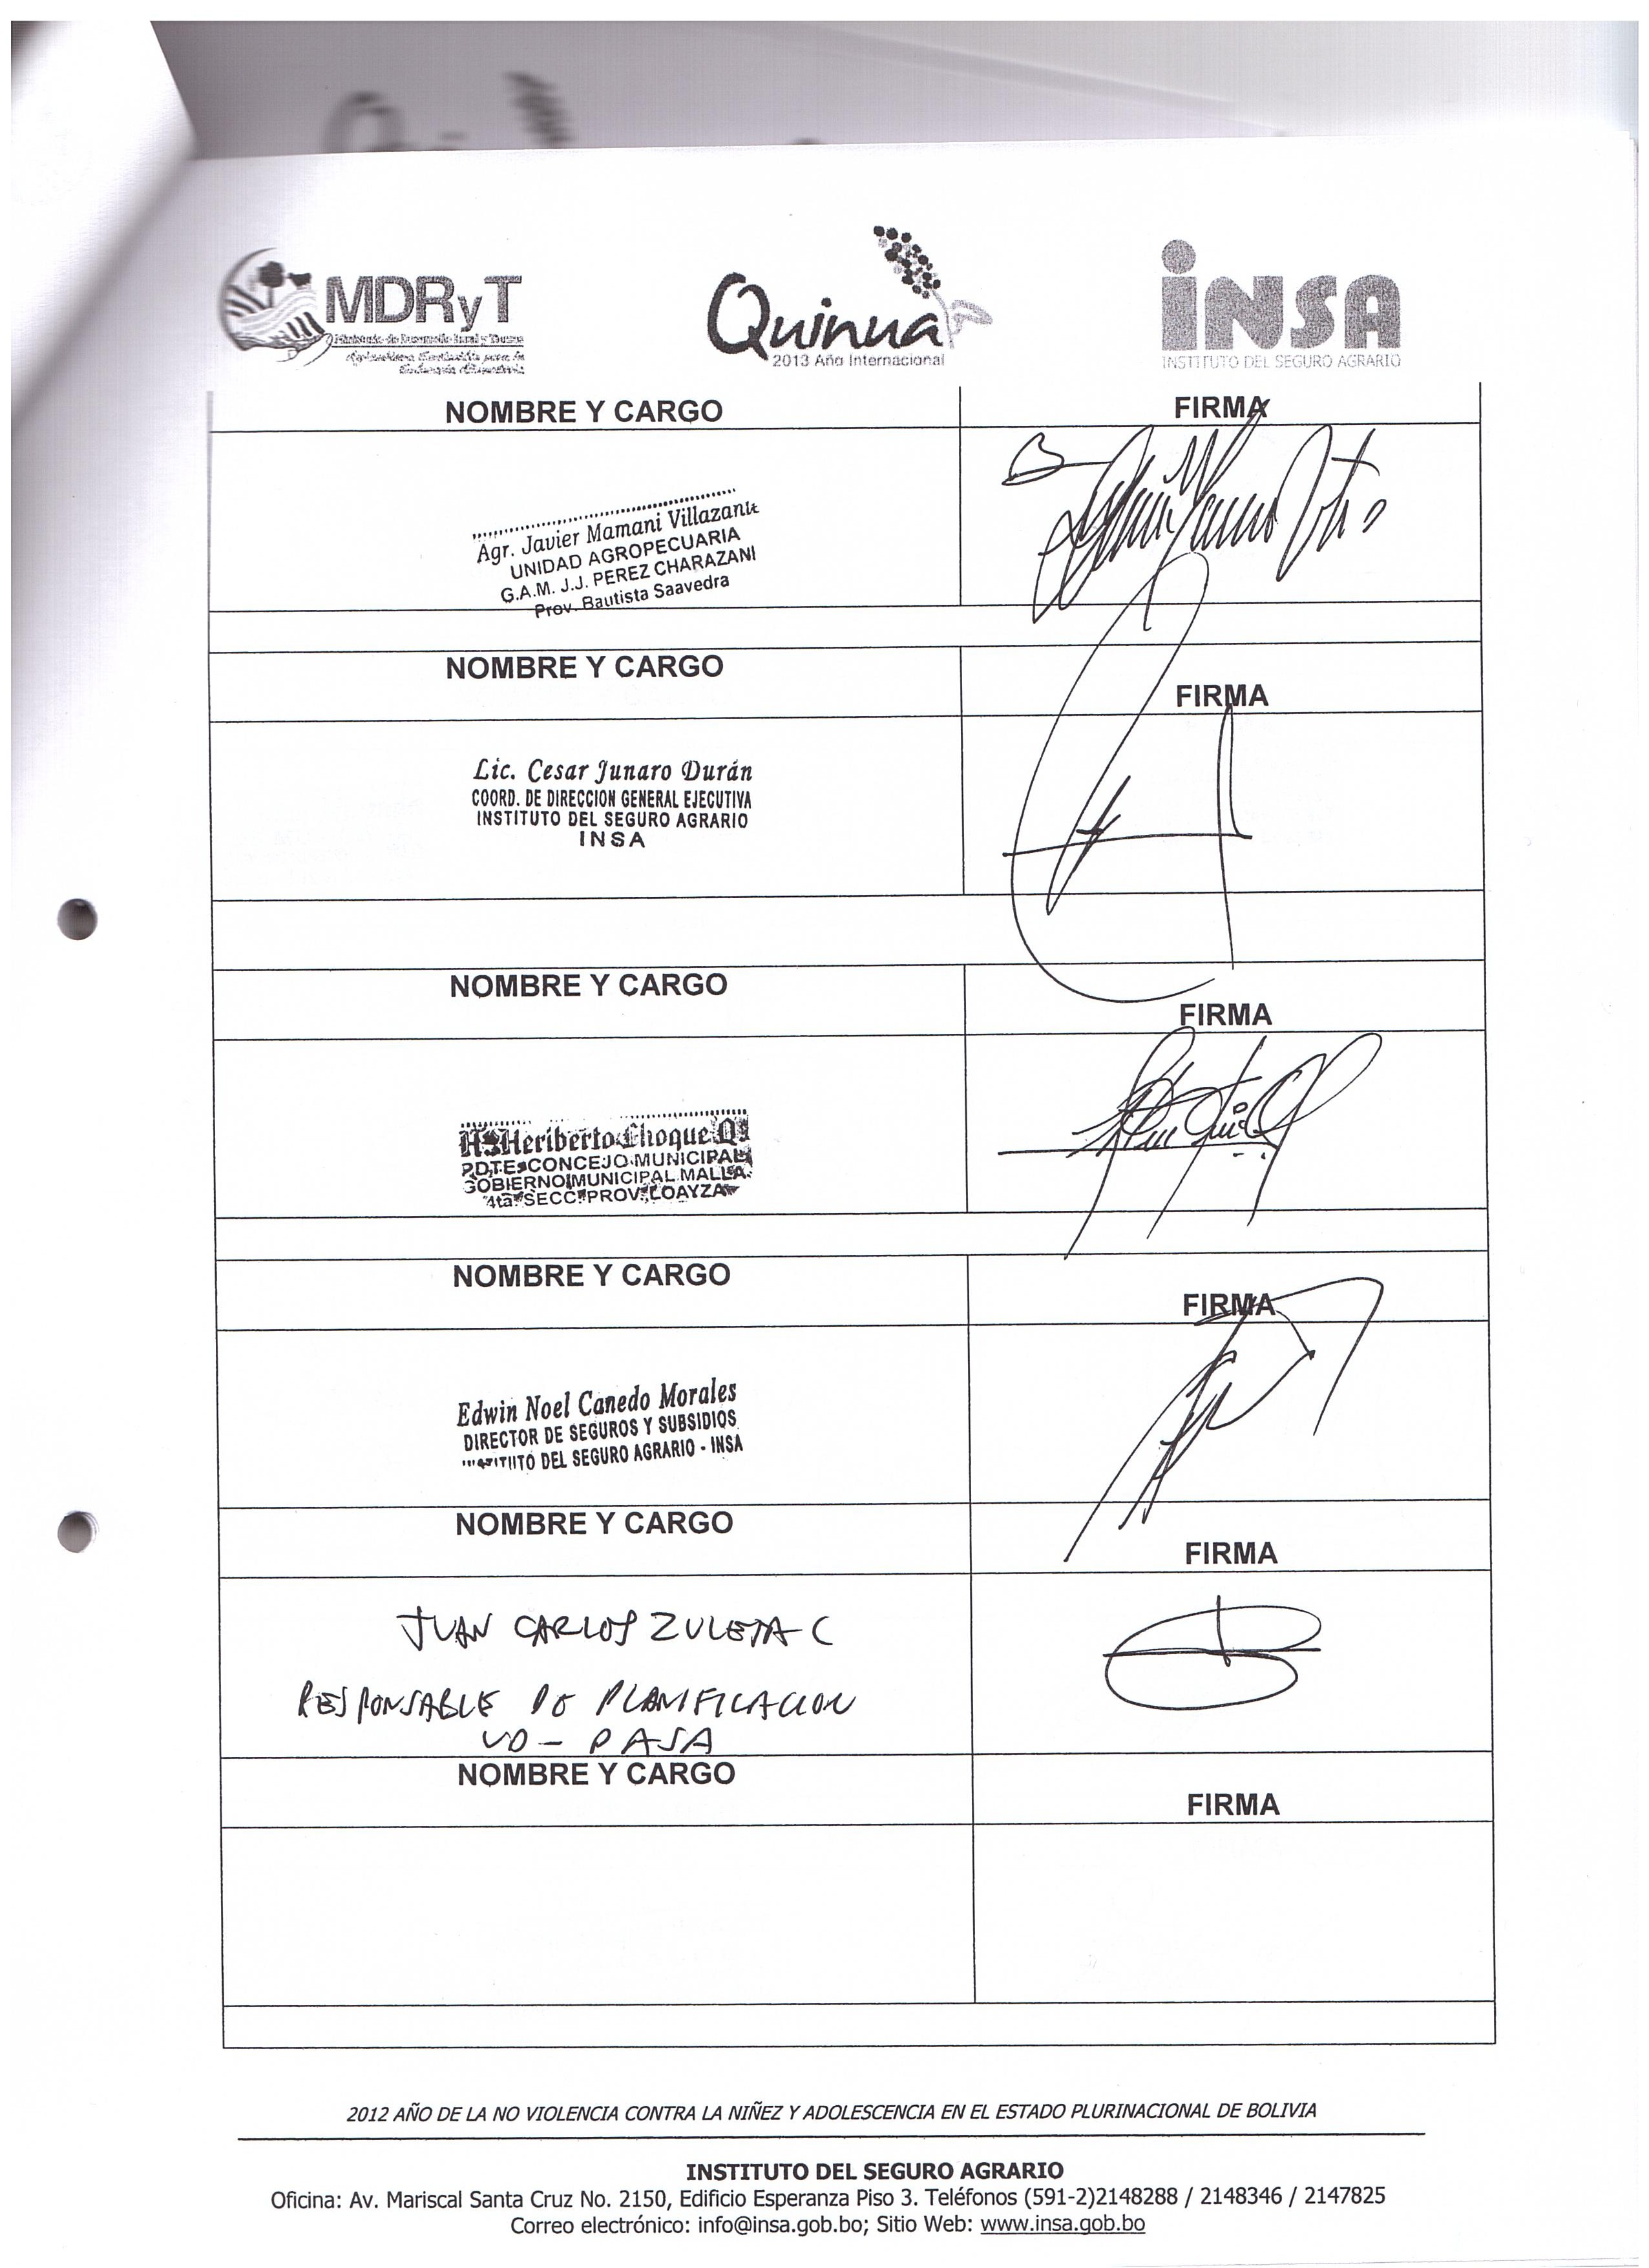 MDRyT
Quinua
2013 Año Internacional
INSA
INSTITUTO DEL SEGURO AGRARIO
NOMBRE Y CARGO
FIRMA
Agr. Javier Mamani
UNIDAD AGROPECUARIA
G.A.M. J.J. PEREZ CHARAZANI
Prov. Bautista Saavedra
NOMBRE Y CARGO
FIRMA
Lic. Cesar Junaro Durán
COORD. DE DIRECCION GENERAL EJECUTIVA
INSTITUTO DEL SEGURO AGRARIO
INSA
NOMBRE Y CARGO
FIRMA
Heriberto Choque Q.
PDTE. CONCEJO MUNICIPAL
GOBIERNO MUNICIPAL MALLA
4ta. SECC. PROV. LOAYZA
NOMBRE Y CARGO
FIRMA
Edwin Noel Canedo Morales
DIRECTOR DE SEGUROS Y SUBSIDIOS
DEL SEGURO AGRARIO - INSA
NOMBRE Y CARGO
FIRMA
JUAN CARLOS ZULETA C
RESPONSABLE DE PLANIFICACION
UD - PASA
NOMBRE Y CARGO
FIRMA
2012 AÑO DE LA NO VIOLENCIA CONTRA LA NIÑEZ Y ADOLESCENCIA EN EL ESTADO PLURINACIONAL DE BOLIVIA
INSTITUTO DEL SEGURO AGRARIO
Oficina: Av. Mariscal Santa Cruz No. 2150, Edificio Esperanza Piso 3. Teléfonos (591-2)2148288 / 2148346 / 2147825
Correo electrónico: info@insa.gob.bo; Sitio Web: www.insa.gob.bo